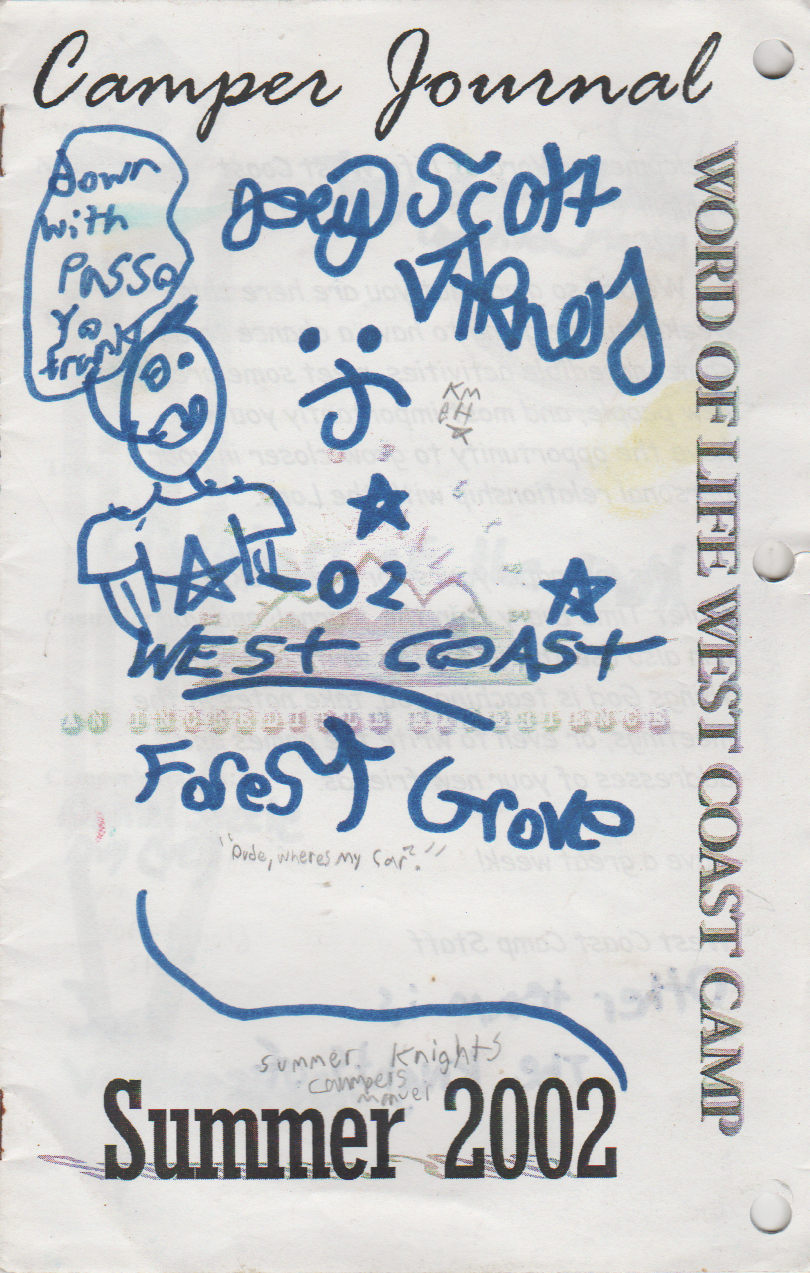 Camper Journal
WORD OF LIFE WEST COAST CAMP
Down
with
Joey Scott
KM
-02
WEST COAST
AN INCREDIBLE EXPERIENCE
Forest Grove
"Dude, wheres my Car?"
Summer Knights
campers
manuel
Summer 2002